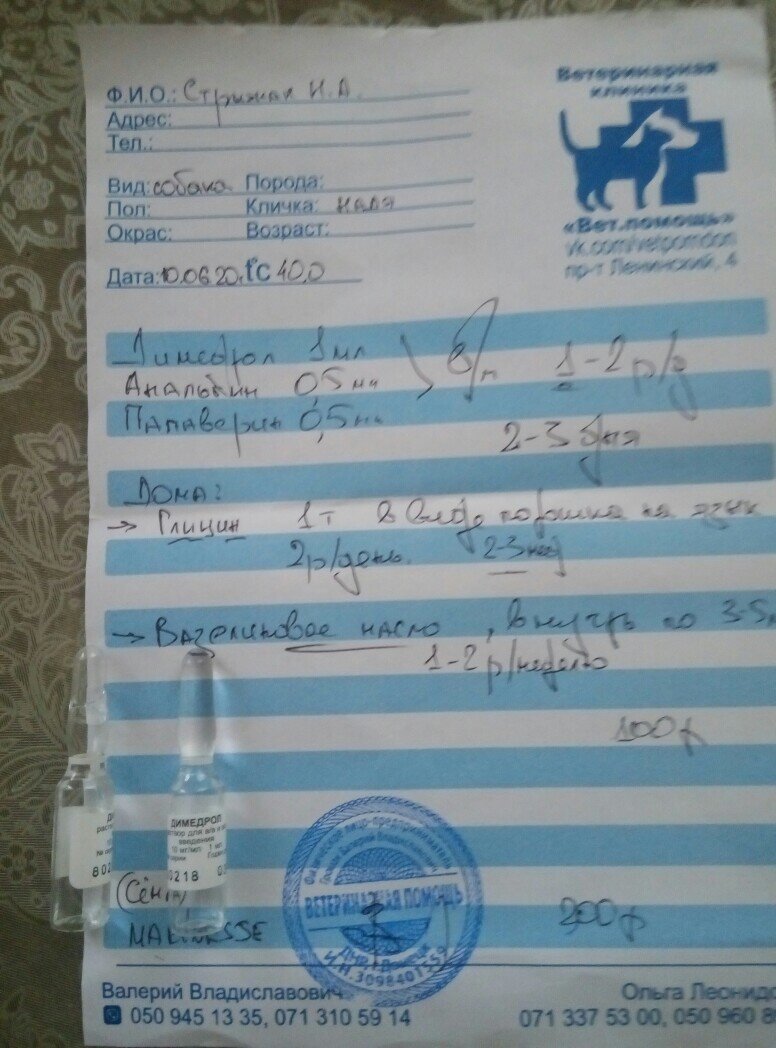 Ветеринарная
клиника
«Вет.помощь»
vk.com/vetpomdon
пр-т Ленинский, 4
Ф.И.О.: Стрыжак Н.А.
Адрес:
Тел.:
Вид: собака Порода:
Пол: Кличка: Надя
Окрас: Возраст:
Дата: 10.06.20. t°C 40,0
Димедрол 1 мл
Анальгин 0,5 мл
Папаверин 0,5 мл
в/м 1-2 р/д
2-3 дня
Дома:
→ Глицин 1т в виде порошка на язык
2р/день. 2-3 нед
→ Вазелиновое масло, внутрь по 3-5
1-2 р/неделю
100р
ДИМЕДРОЛ
введения
10 мг/мл 1 мл
серии
0218
802
(Сенна)
200р
Физическое лицо-предприниматель
Валерий Владиславович
ВЕТЕРИНАРНАЯ ПОМОЩЬ
ДНР г. Донецк
И.Н.3098401359
Валерий Владиславович
050 945 13 35, 071 310 59 14
Ольга Леонидо
071 337 53 00, 050 960 8